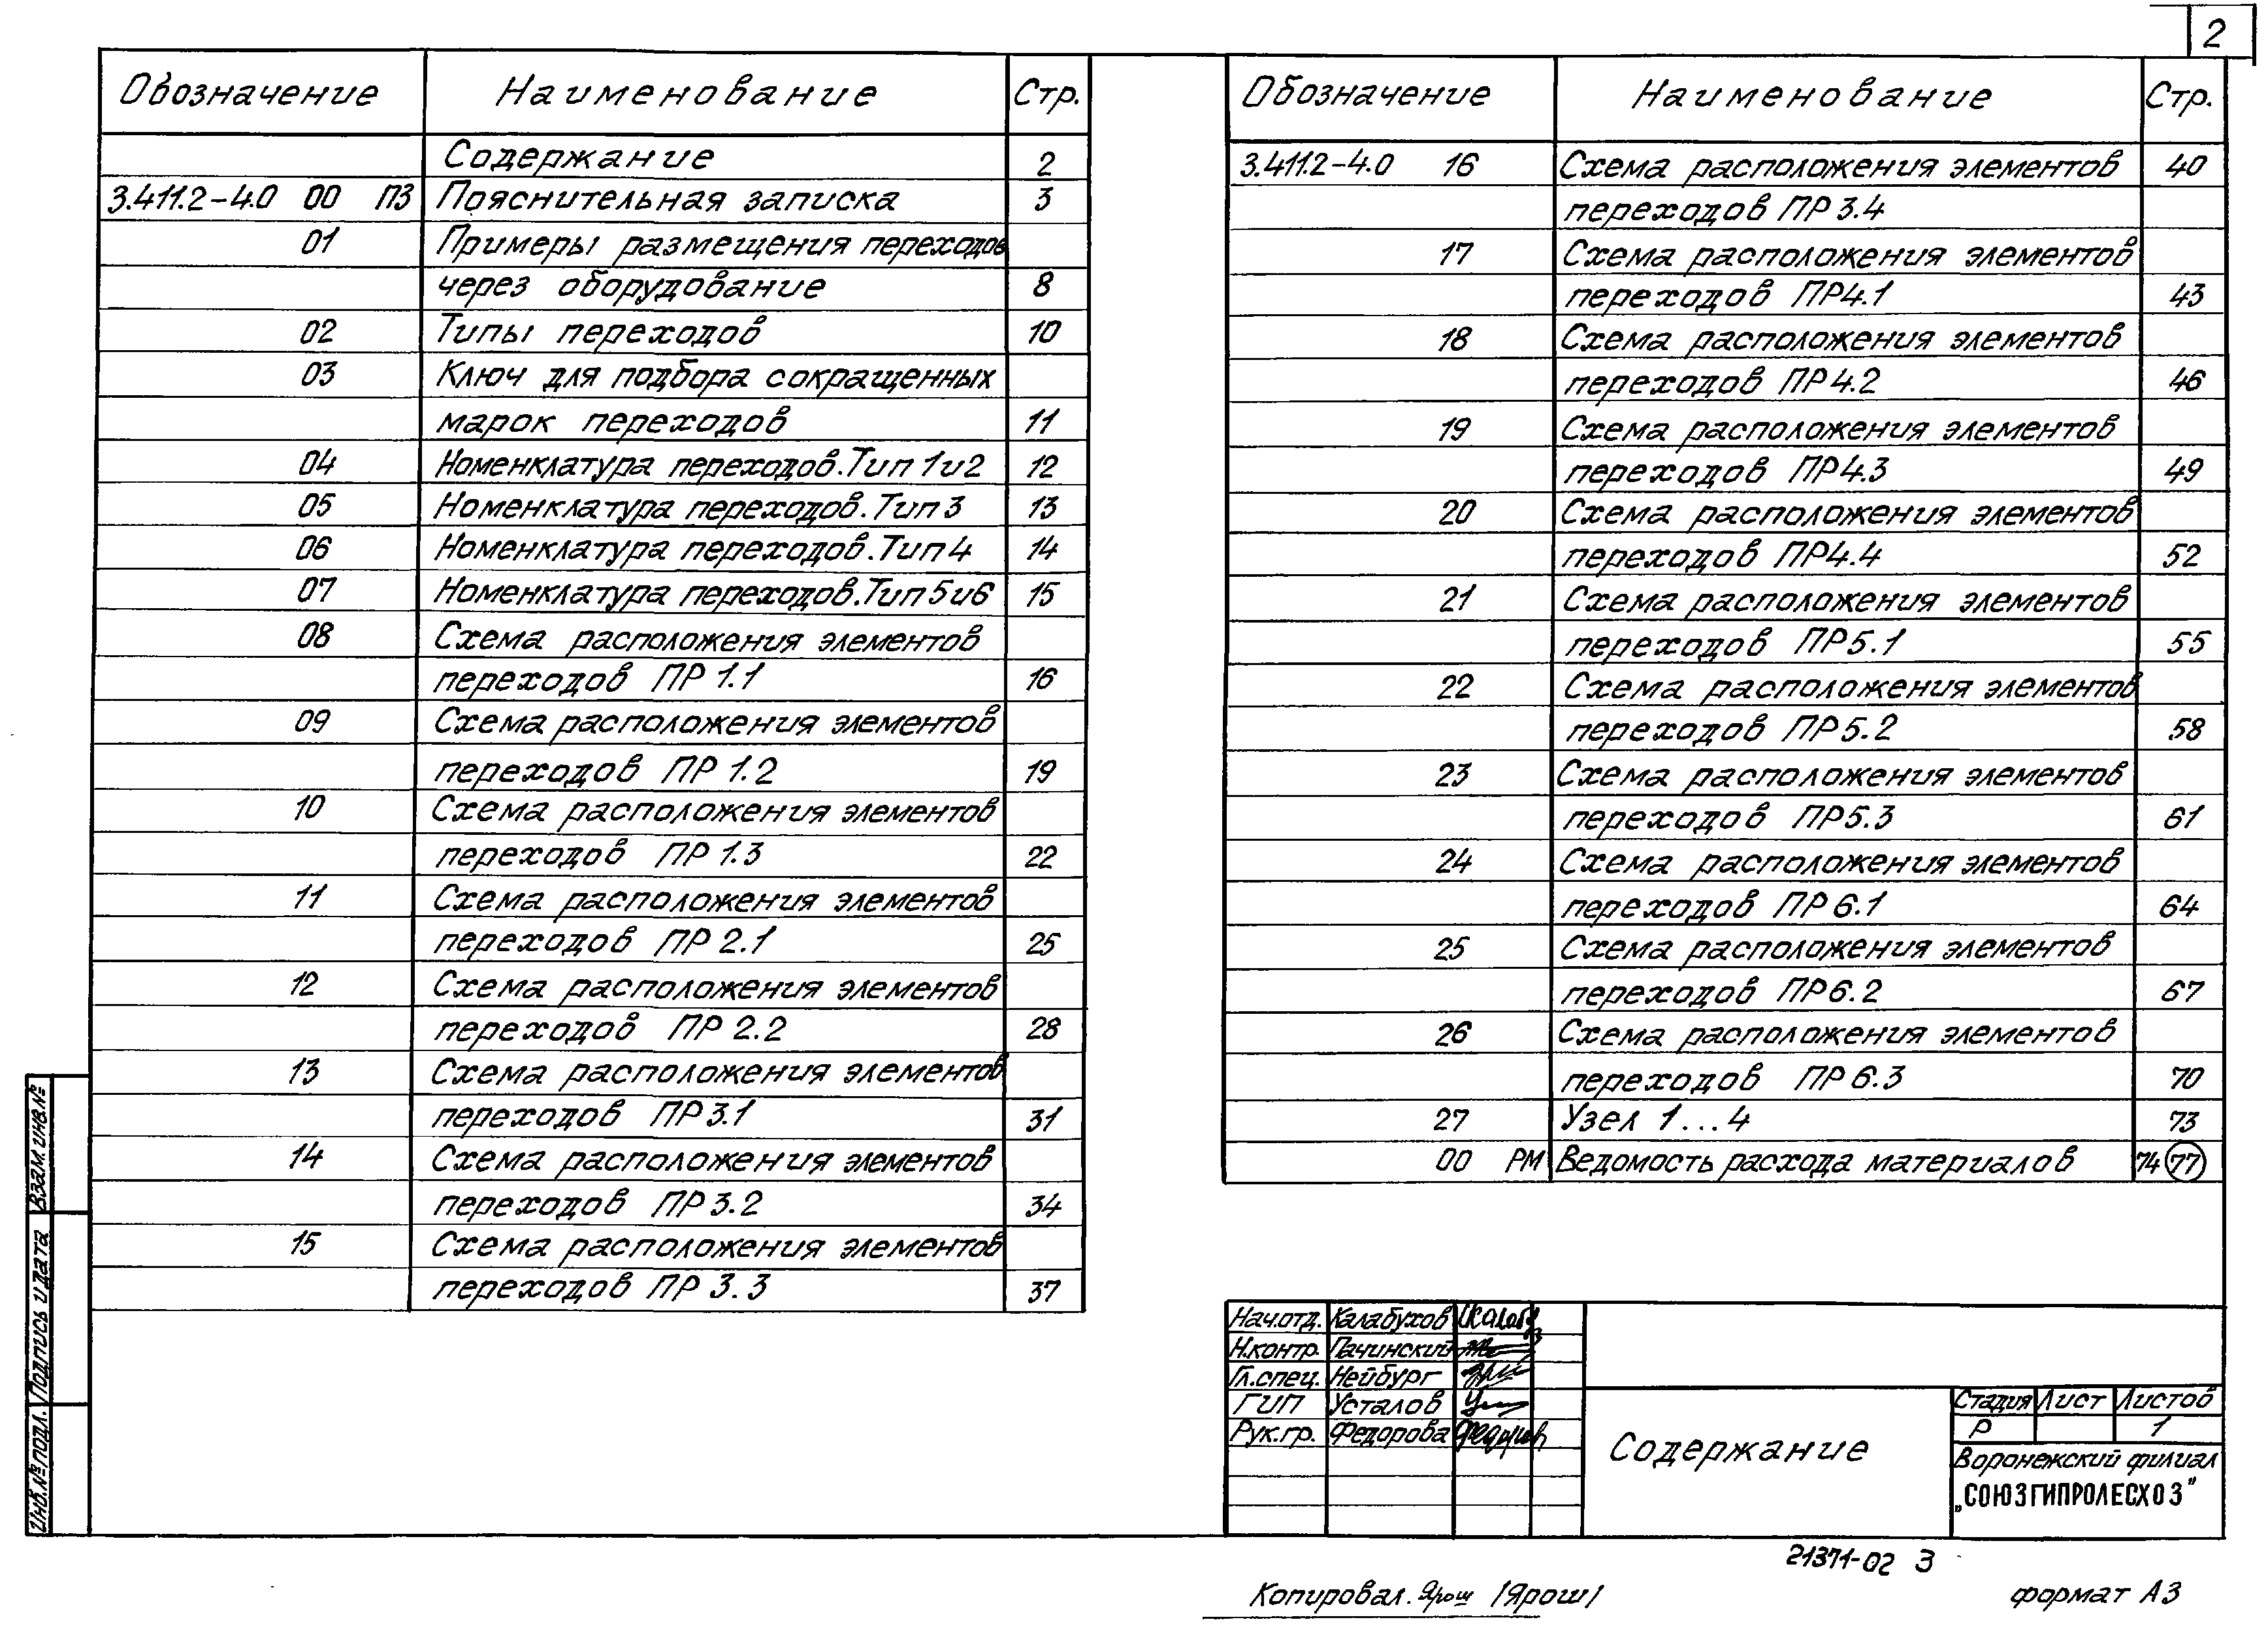 2
Обозначение Наименование Стр.
Содержание 2
3.411.2-4.0 00 ПЗ Пояснительная записка 3
01 Примеры размещения переходов
через оборудование 8
02 Типы переходов 10
03 Ключ для подбора сокращенных
марок переходов 11
04 Номенклатура переходов. Тип 1 и 2 12
05 Номенклатура переходов. Тип 3 13
06 Номенклатура переходов. Тип 4 14
07 Номенклатура переходов. Тип 5 и 6 15
08 Схема расположения элементов
переходов ПР 1.1 16
09 Схема расположения элементов
переходов ПР 1.2 19
10 Схема расположения элементов
переходов ПР 1.3 22
11 Схема расположения элементов
переходов ПР 2.1 25
12 Схема расположения элементов
переходов ПР 2.2 28
13 Схема расположения элементов
переходов ПР 3.1 31
14 Схема расположения элементов
переходов ПР 3.2 34
15 Схема расположения элементов
переходов ПР 3.3 37
Обозначение Наименование Стр.
3.411.2-4.0 16 Схема расположения элементов 40
переходов ПР 3.4
17 Схема расположения элементов
переходов ПР4.1 43
18 Схема расположения элементов
переходов ПР4.2 46
19 Схема расположения элементов
переходов ПР4.3 49
20 Схема расположения элементов
переходов ПР4.4 52
21 Схема расположения элементов
переходов ПР5.1 55
22 Схема расположения элементов
переходов ПР5.2 58
23 Схема расположения элементов
переходов ПР5.3 61
24 Схема расположения элементов
переходов ПР6.1 64
25 Схема расположения элементов
переходов ПР6.2 67
26 Схема расположения элементов
переходов ПР6.3 70
27 Узел 1...4 73
00 РМ Ведомость расхода материалов 74 77
Взам. инв. №
Подпись и дата
Инв. № подл.
Нач.отд. Калабухов
Н.контр. Пачинский
Гл.спец. Нейбург
ГИП Усталов
Рук.гр. Федорова
Содержание
Стадия Лист Листов
Р 1
Воронежский филиал
„СОЮЗГИПРОЛЕСХОЗ"
21371-02 3
Копировал. Ярош /Ярош/
формат А3